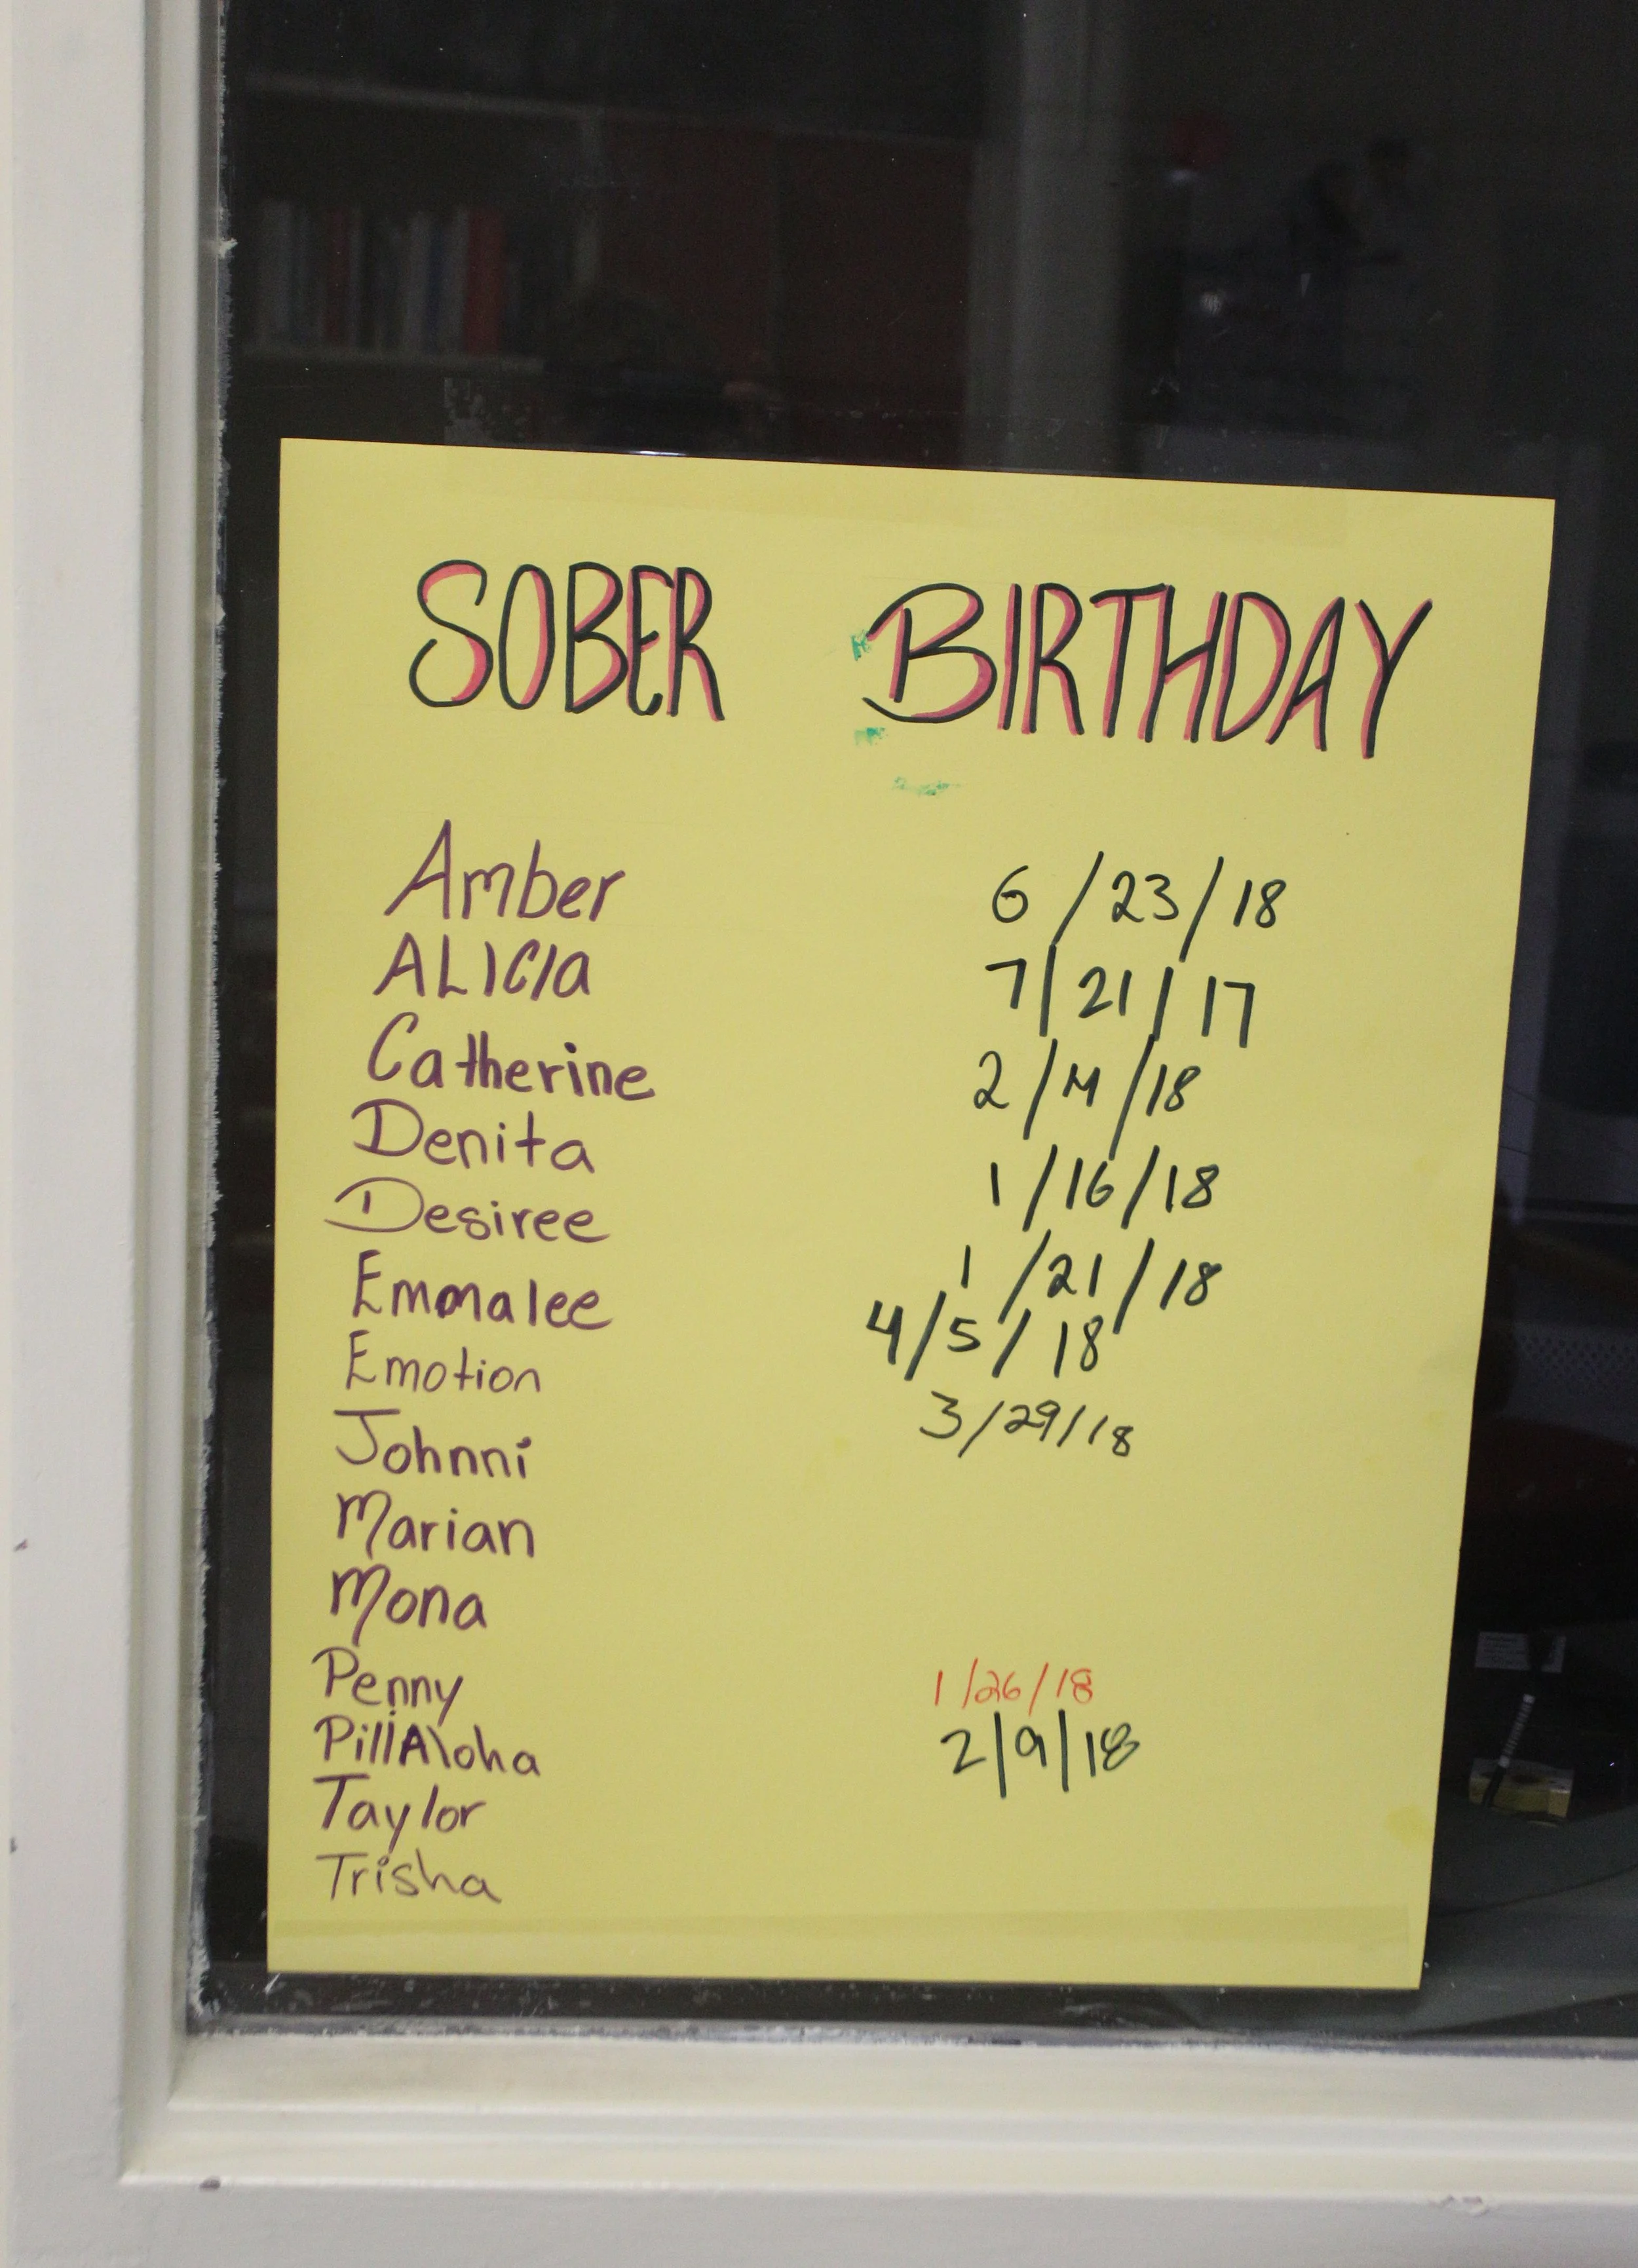 SOBER BIRTHDAY
Amber 6/23/18
ALICIa 7/21/17
Catherine 2/14/18
Denita 1/16/18
Desiree 1/21/18
Emmalee 4/5/18
Emotion 3/29/18
Johnni
Marian
Mona
Penny 1/26/18
PillAloha 2/9/18
Taylor
Trisha